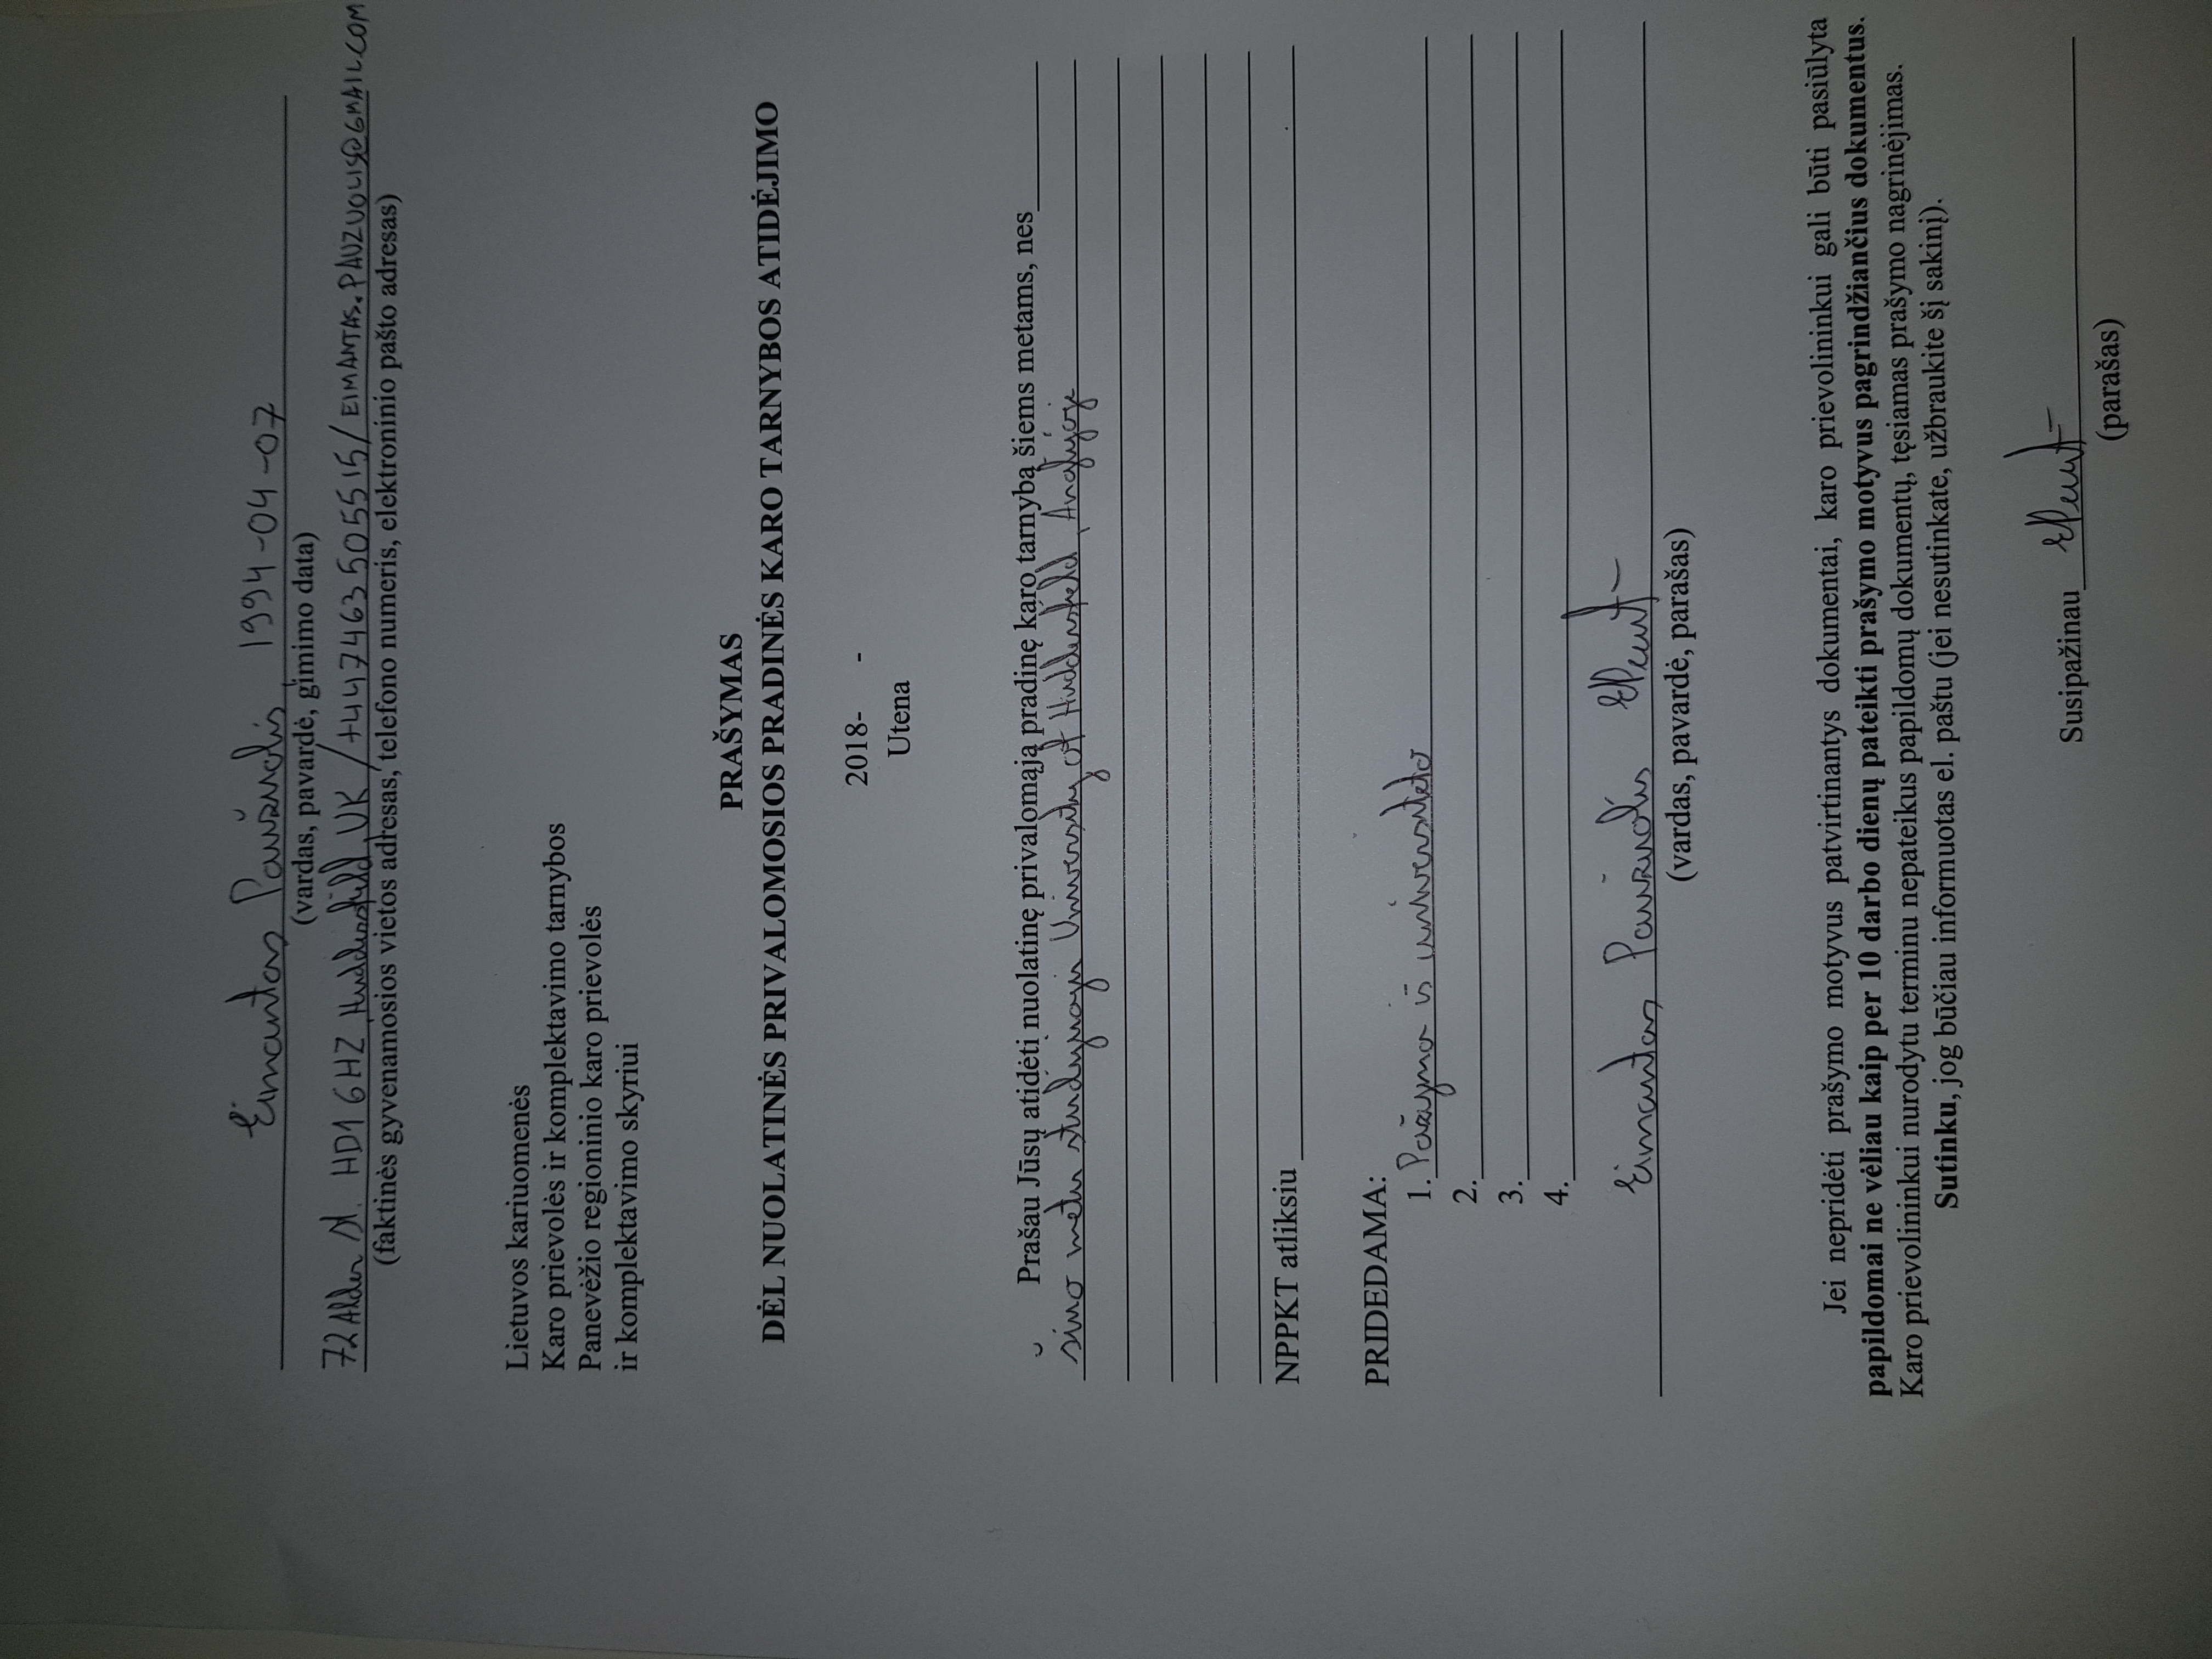 Eimantas Paužuolis, 1994-04-07
(vardas, pavardė, gimimo data)
72 Alder St. HD1 6HZ, Huddersfield, UK / +447463505515 / EIMANTAS.PAUZUOLIS@GMAIL.COM
(faktinės gyvenamosios vietos adresas, telefono numeris, elektroninio pašto adresas)
Lietuvos kariuomenės
Karo prievolės ir komplektavimo tarnybos
Panevėžio regioninio karo prievolės
ir komplektavimo skyriui
PRAŠYMAS
DĖL NUOLATINĖS PRIVALOMOSIOS PRADINĖS KARO TARNYBOS ATIDĖJIMO
2018- -
Utena
Prašau Jūsų atidėti nuolatinę privalomąją pradinę karo tarnybą šiems metams, nes
šiuo metu studijuoju University of Huddersfield, Anglijoje
NPPKT atliksiu
PRIDEDAMA:
1. Pažyma iš universiteto
2.
3.
4.
Eimantas Paužuolis
(vardas, pavardė, parašas)
Jei nepridėti prašymo motyvus patvirtinantys dokumentai, karo prievolininkui gali būti pasiūlyta
papildomai ne vėliau kaip per 10 darbo dienų pateikti prašymo motyvus pagrindžiančius dokumentus.
Karo prievolininkui nurodytu terminu nepateikus papildomų dokumentų, tęsiamas prašymo nagrinėjimas.
Sutinku, jog būčiau informuotas el. paštu (jei nesutinkate, užbraukite šį sakinį).
Susipažinau
(parašas)